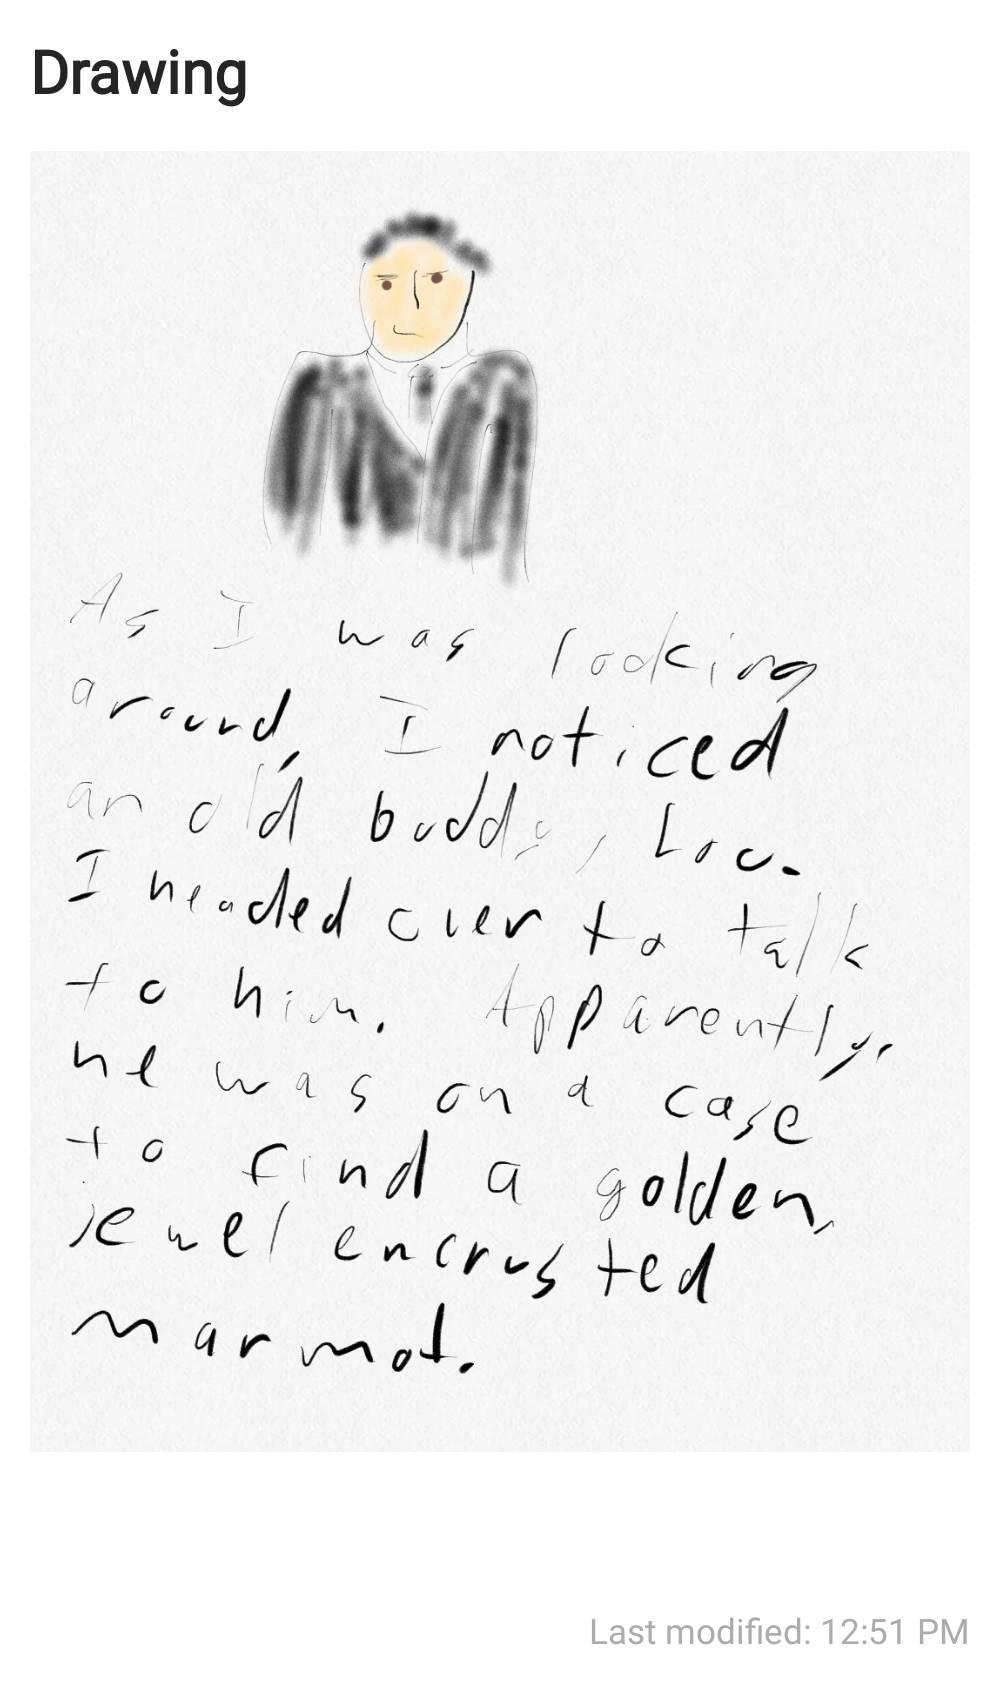 Drawing
As I was looking
around, I noticed
an old buddy, Lou.
I headed over to talk
to him. Apparently,
he was on a case
to find a golden,
jewel encrusted
marmot.
Last modified: 12:51 PM